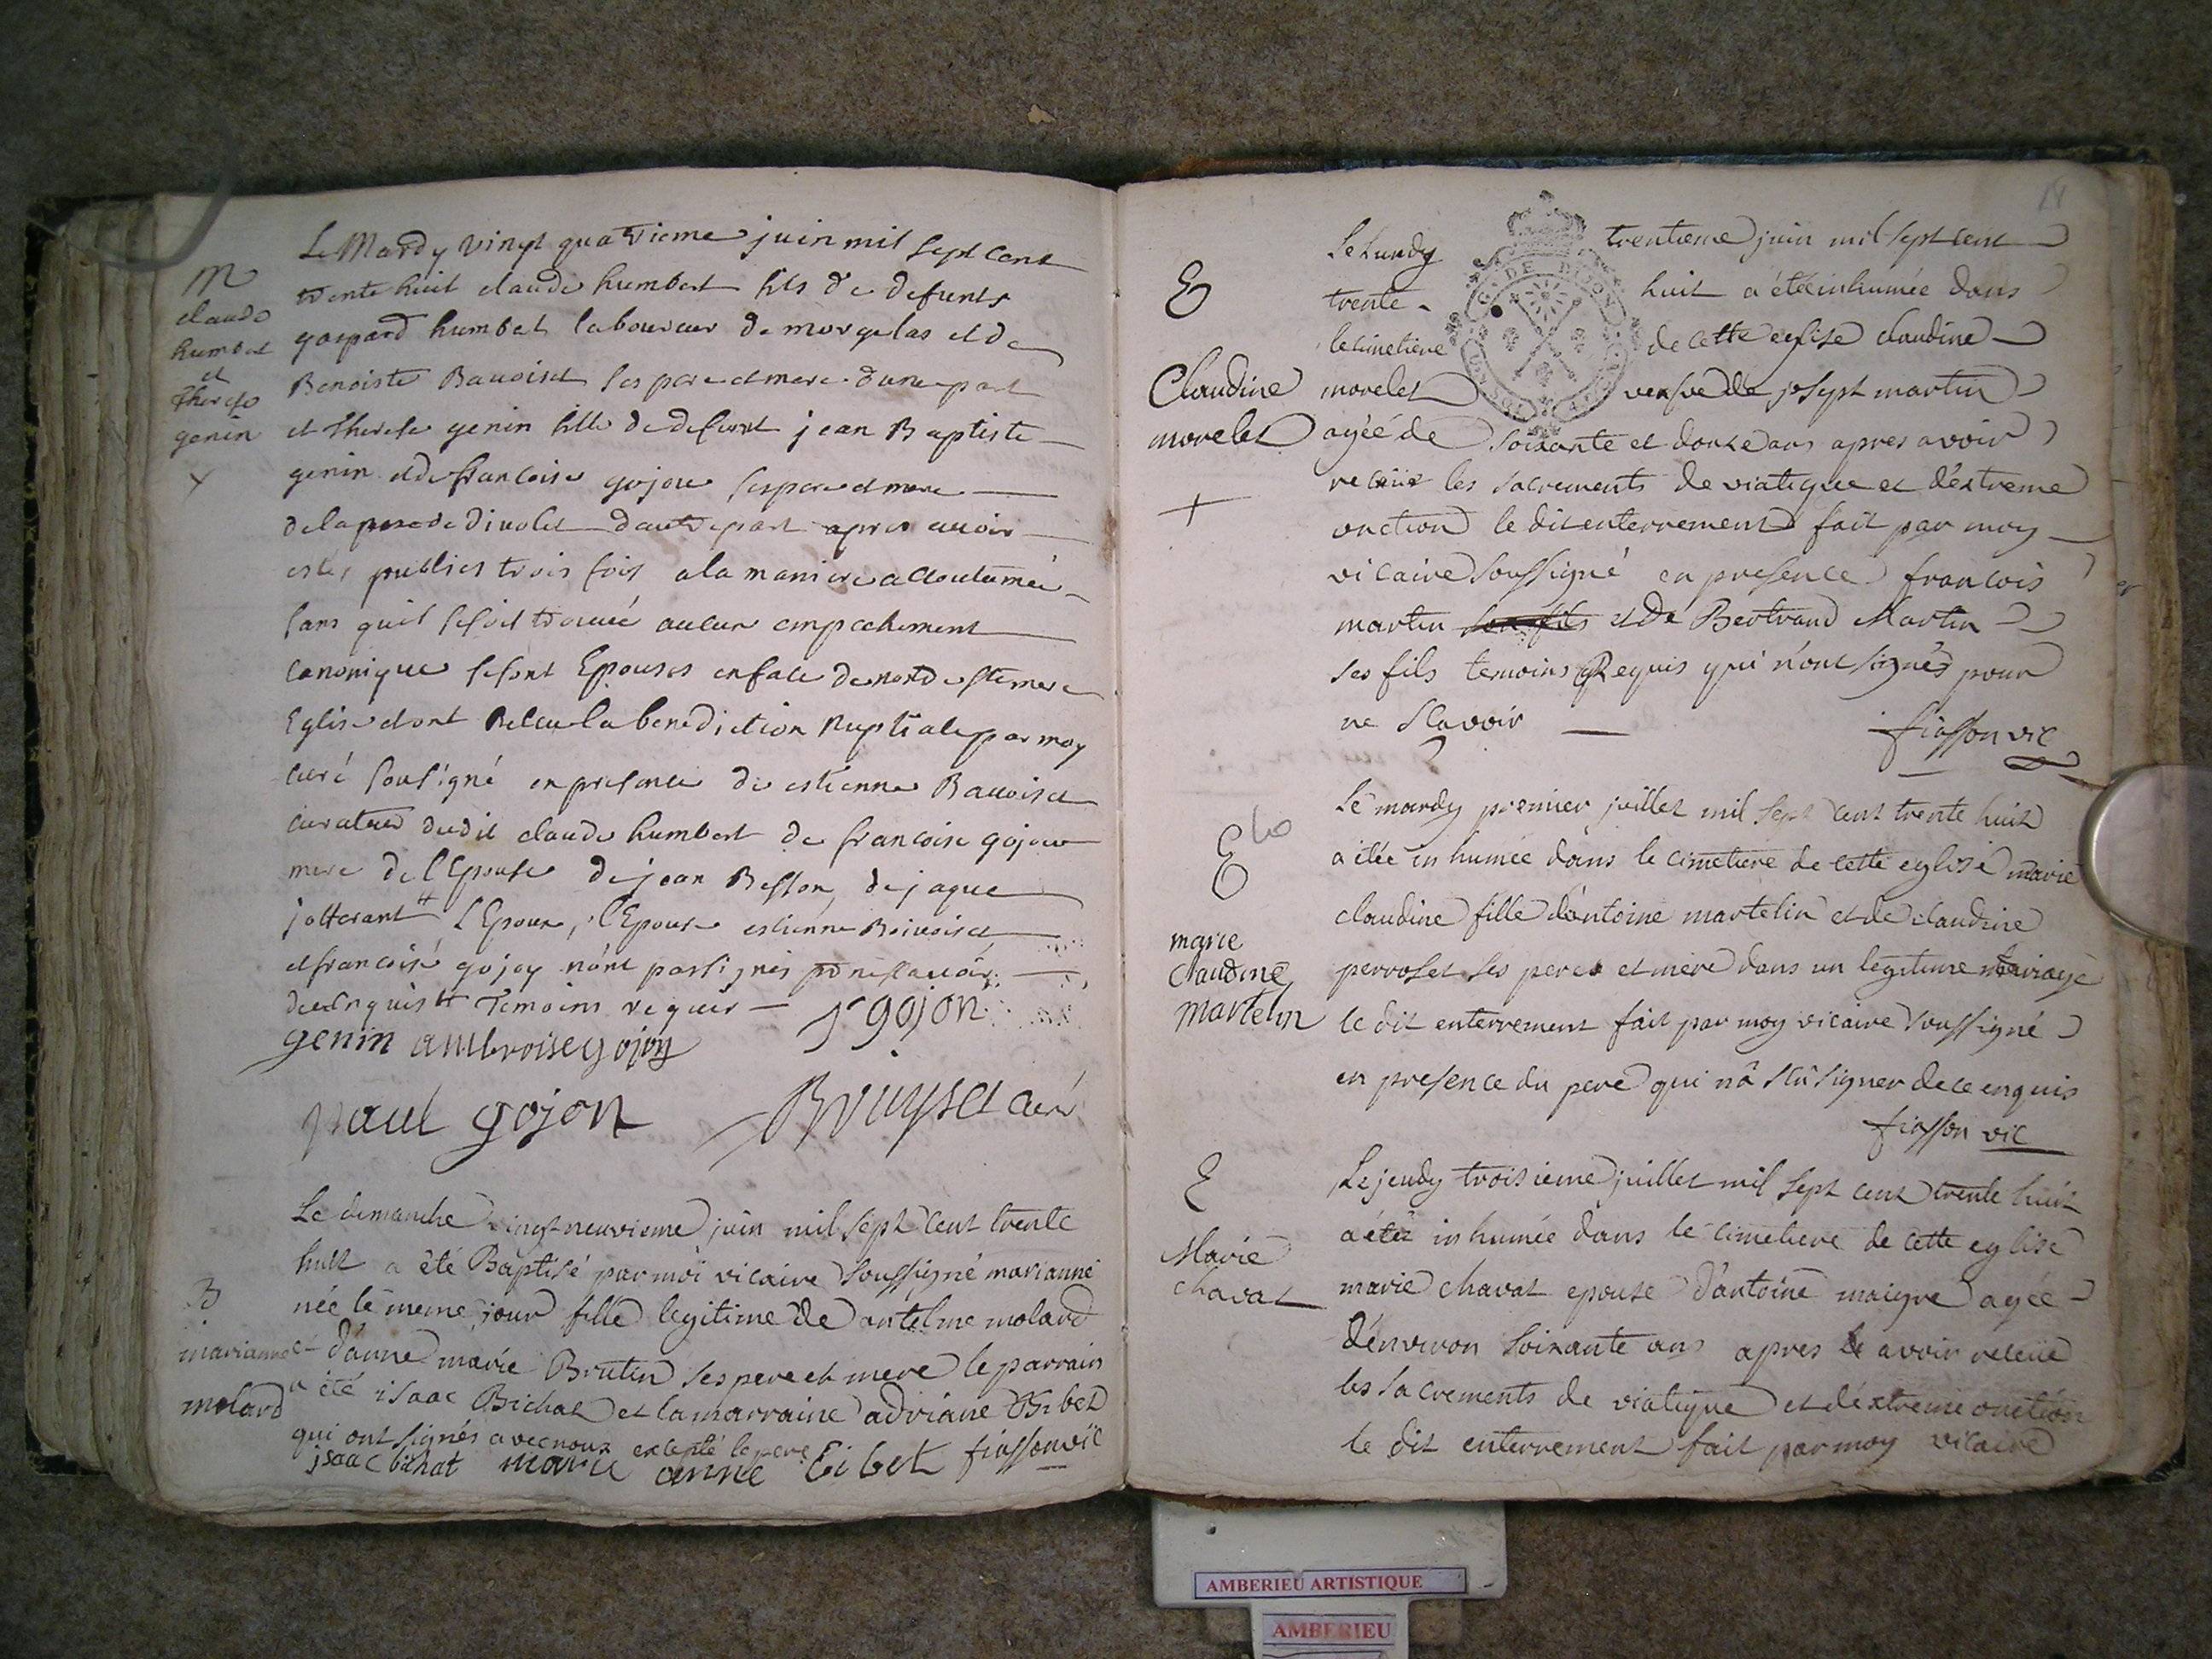 Le Mardy vingt quatrieme juin mil sept cent
trente huit claude humbert fils de defunts
gaspard humbert laboureur de morgelas et de
Benoiste Bauoiset ses pere et mere d'une part
et Therese genin fille de defunt jean Baptiste
genin et de francoise gojon ses pere et mere
de la paroisse de diuolet d'autre part apres auoir
estés publies trois fois a la maniere accoutumée
sans quil se soit trouué aucun empechement
canonique se sont Epousés en face de notre ste mere
Eglise et ont Receu la benediction Nuptiale par moy
curé sousigné en presence de estienne Bauoiset
curateur dudit claude humbert de francoise gojon
mere de l'Epouse de jean Besson, de jaque
jotterant # l'Epoux, l'Epouse estienne Bauoiset
et francoise gojon n'ont pas signés pr ne scauoir
de ce Enquis # Temoins requis
genin ambroise gojon
gojon
paul gojon
Bruyset curé
M
claude
humbert
et
Therese
genin
Le dimanche vingt-neuvieme juin mil sept cent trente
huit a été Baptisé par moi vicaire soussigné marianne
née le meme jour fille legitime de antelme molard
et d'anne marie Brutin ses pere et mere le parrain
a été isaac Bichat et la marraine adriane Gibet
qui ont signés avec nous excepté le pere
isaac bichat marie anne Gibet fiasson vic
B
marianne
molard
Le Lundy trentieme juin mil sept cent
trente huit a été inhumée dans
le cimetiere de cette eglise claudine
morelet veufve de joseph martin
agéé de soixante et douze ans apres avoir
recüe les sacrements de viatique et d'extreme
onction le dit enterrement fait par moy
vicaire soussigné en presence francois
martin son fils et de Bertrand Martin
ses fils temoins Requis qui n'ont signés pour
ne scavoir
fiasson vic
E
Claudine
morelet
Le mardy premier juillet mil sept cent trente huit
a étée inhumée dans le cimetiere de cette eglise marie
claudine fille d'antoine martelin et de claudine
perroset ses pere et mere dans un legitime mariage
le dit enterrement fait par moy vicaire soussigné
en presence du pere qui n'a scû signer de ce enquis
fiasson vic
E
marie
claudine
martelin
Le jeudy troisieme juillet mil sept cent trente huit
a été inhumée dans le cimetiere de cette eglise
marie chavat epouse d'antoine maigre agée
d'environ soixante ans apres avoir receüe
les sacrements de viatique et d'extreme onction
le dit enterrement fait par moy vicaire
E
Marie
chavat
AMBERIEU ARTISTIQUE
AMBERIEU